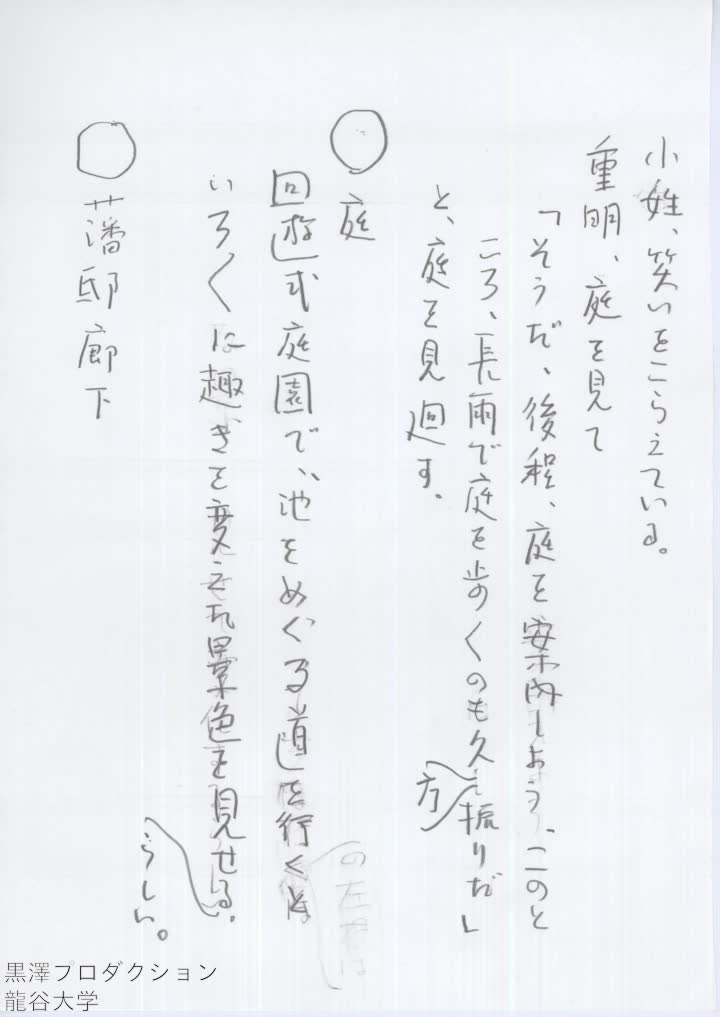 小姓、笑いをこらえている。
重明、庭を見て
「そうだ、後程、庭を案内しよう、このと
ころ、長雨で庭を歩くのも久方振りだ」
と、庭を見廻す。
○庭
回遊式庭園で、池をめぐる道を行くと
いろくに趣きを変えた景色を見せるらしい。
○藩邸廊下
黒澤プロダクション
龍谷大学